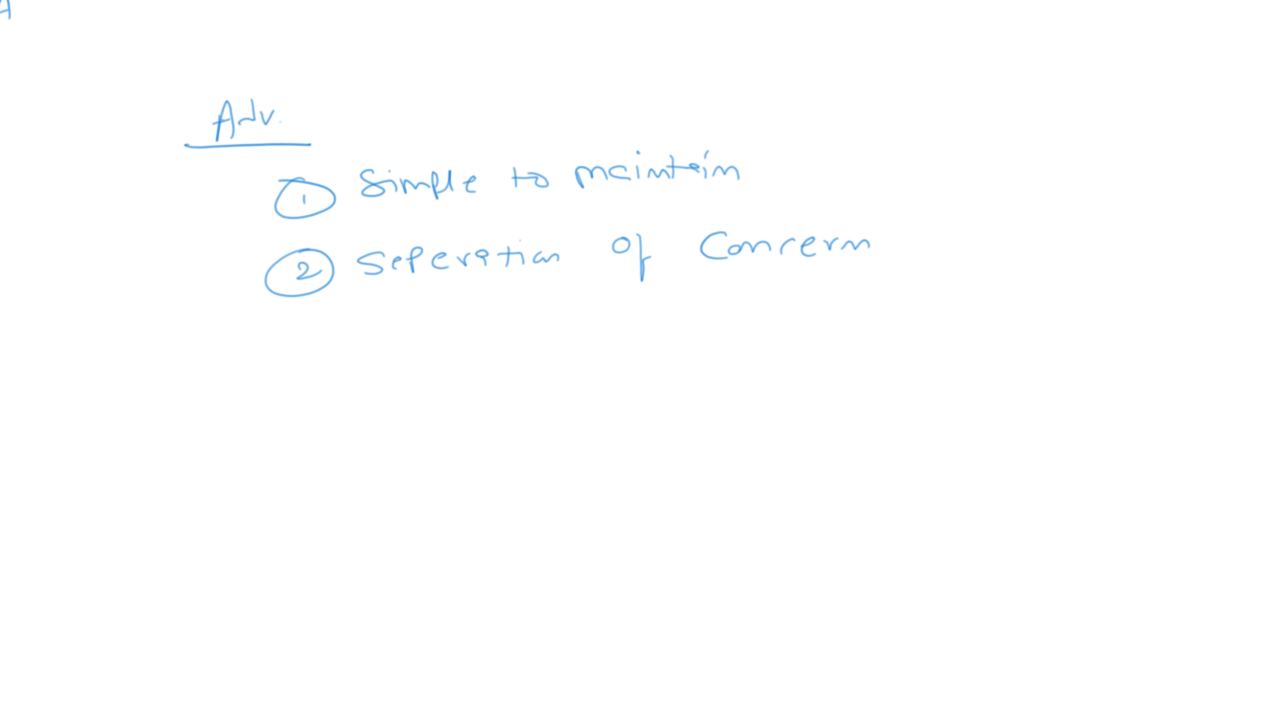 Adv.
① Simple to maintain
② Seperation of Concern